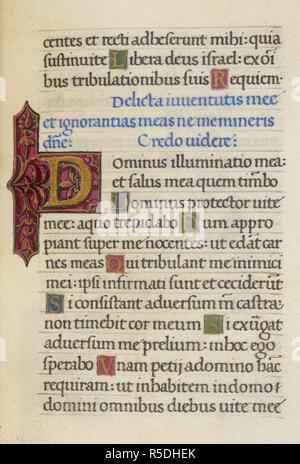 centes et recti adheserunt mihi: quia
sustinui te Libera deus israel: ex oi
bus tribulationibus suis Requiem.
Delicta iuventutis mee
et ignorantias meas ne memineris
dne: Credo videre:
Dominus illuminatio mea:
et salus mea quem timbo
Dominus protector vite
mee: a quo trepidabo Dum appro
piant super me nocentes: ut edat car
nes meas Qui tribulant me inimici
mei: ipsi infirmati sunt et ceciderut
Si consistant adversum me castra:
non timebit cor meum Si exurgat
adversum me prelium: in hoc ego
sperabo Unam petij a domino hac
requiram: ut inhabitem in domo
domini omnibus diebus vite mee
alamy
Image ID: R5DHEK
www.alamy.com